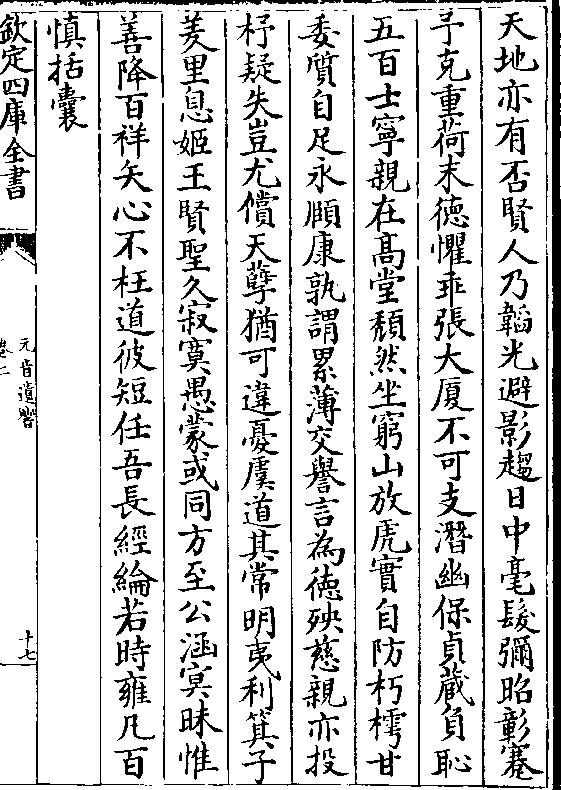 天地亦有否賢人乃韜光避影趨日中毫髮彌昭彰蹇
予克重荷末德懼乖張大厦不可支潛幽保貞藏負恥
五百士寧親在髙堂頽然坐窮山放虎實自防朽樗甘
委質自足永頤康孰謂累薄交譽言為德殃慈親亦投
杼疑失豈尤償天孽猶可違憂虞道其常明夷利箕子
羑里息姬王賢聖久寂寞愚蒙或同方至公涵冥昧惟
善降百祥矢心不枉道彼短任吾長經綸若時雍凡百
慎括囊
欽定四庫全書
元音遺響
卷二
十七